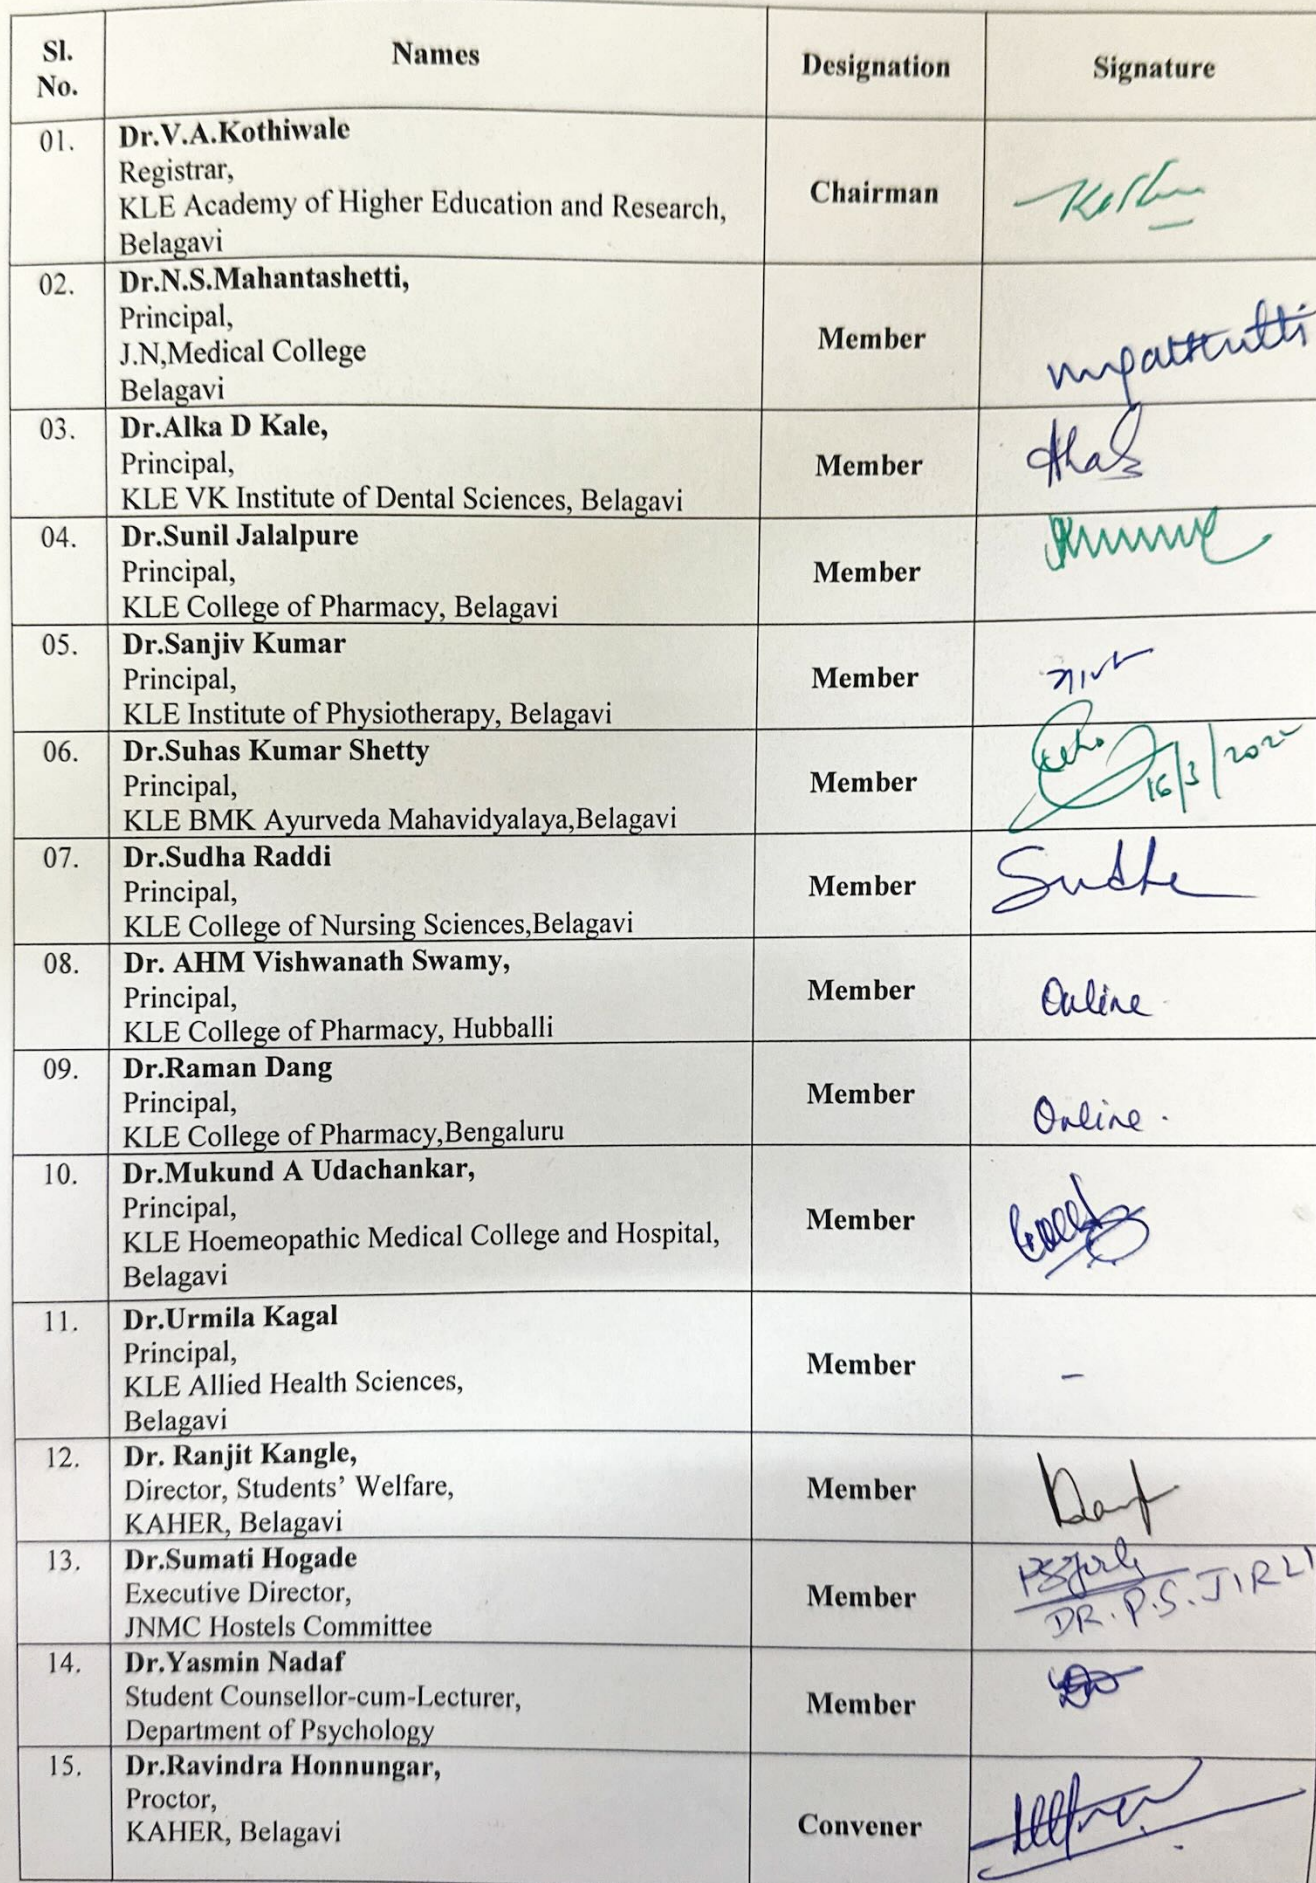 Sl. No.
Names
Designation
Signature
01.
Dr.V.A.Kothiwale
Registrar,
KLE Academy of Higher Education and Research,
Belagavi
Chairman
02.
Dr.N.S.Mahantashetti,
Principal,
J.N,Medical College
Belagavi
Member
03.
Dr.Alka D Kale,
Principal,
KLE VK Institute of Dental Sciences, Belagavi
Member
04.
Dr.Sunil Jalalpure
Principal,
KLE College of Pharmacy, Belagavi
Member
05.
Dr.Sanjiv Kumar
Principal,
KLE Institute of Physiotherapy, Belagavi
Member
06.
Dr.Suhas Kumar Shetty
Principal,
KLE BMK Ayurveda Mahavidyalaya,Belagavi
Member
16/3/2022
07.
Dr.Sudha Raddi
Principal,
KLE College of Nursing Sciences,Belagavi
Member
Sudha
08.
Dr. AHM Vishwanath Swamy,
Principal,
KLE College of Pharmacy, Hubballi
Member
Online
09.
Dr.Raman Dang
Principal,
KLE College of Pharmacy,Bengaluru
Member
Online.
10.
Dr.Mukund A Udachankar,
Principal,
KLE Hoemeopathic Medical College and Hospital,
Belagavi
Member
11.
Dr.Urmila Kagal
Principal,
KLE Allied Health Sciences,
Belagavi
Member
–
12.
Dr. Ranjit Kangle,
Director, Students’ Welfare,
KAHER, Belagavi
Member
13.
Dr.Sumati Hogade
Executive Director,
JNMC Hostels Committee
Member
DR. P.S. JIRLI
14.
Dr.Yasmin Nadaf
Student Counsellor-cum-Lecturer,
Department of Psychology
Member
15.
Dr.Ravindra Honnungar,
Proctor,
KAHER, Belagavi
Convener